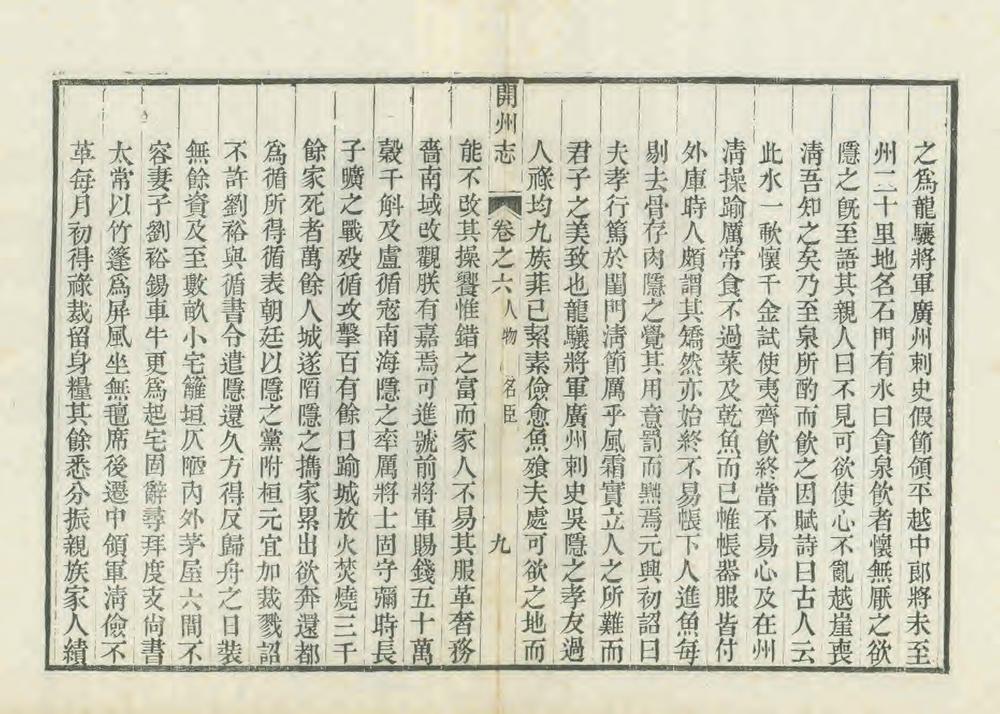 之為龍驤將軍廣州刺史假節領平越中郎將未至
州二十里地名石門有水曰貪泉飲者懷無厭之欲
隱之旣至語其親人曰不見可欲使心不亂越崖喪
淸吾知之矣乃至泉所酌而飲之因賦詩曰古人云
此水一歃懷千金試使夷齊飲終當不易心及在州
淸操踰厲常食不過菜及乾魚而已帷帳器服皆付
外庫時人頗謂其矯然亦始終不易帳下人進魚每
剔去骨存肉隱之覺其用意罰而黜焉元興初詔曰
夫孝行篤於閨門淸節厲乎風霜實立人之所難而
君子之美致也龍驤將軍廣州刺史吳隱之孝友過
人祿均九族菲已絜素儉愈魚飱夫處可欲之地而
開州志 卷之六 人物 名臣 九
能不改其操饗惟錯之富而家人不易其服革奢務
嗇南域改觀朕有嘉焉可進號前將軍賜錢五十萬
穀千斛及盧循寇南海隱之率厲將士固守彌時長
子曠之戰殁循攻擊百有餘日踰城放火焚燒三千
餘家死者萬餘人城遂陷隱之攜家累出欲奔還都
爲循所得循表朝廷以隱之黨附桓元宜加裁戮詔
不許劉裕與循書令遣隱還久方得反歸舟之日裝
無餘資及至數畝小宅籬垣仄陋內外茅屋六間不
容妻子劉裕錫車牛更爲起宅固辭尋拜度支尙書
太常以竹篷爲屏風坐無氊席後遷中領軍淸儉不
革每月初得祿裁留身糧其餘悉分振親族家人績